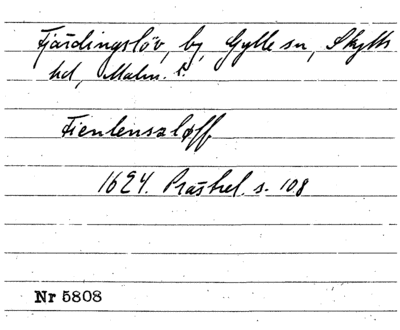 Fjärdingslöv, by, Gylle sn, Skytts
hd, Malm. l.
Fienlenszløff
1624. Prästrel. s. 108
Nr 5808